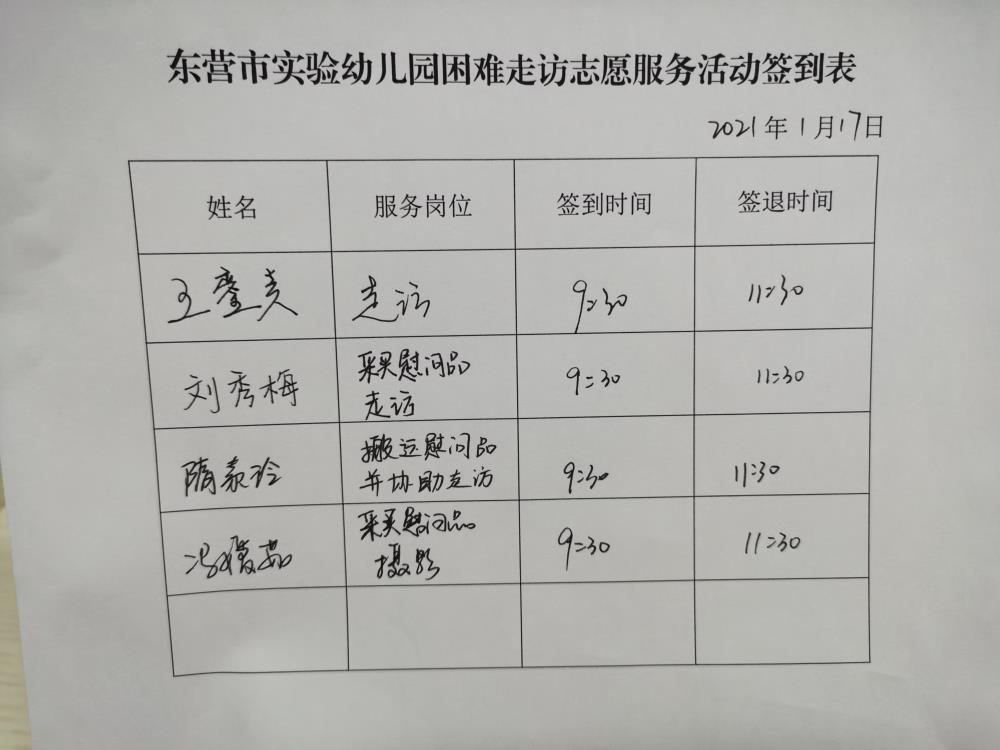 东营市实验幼儿园困难走访志愿服务活动签到表
2021年1月17日
姓名 服务岗位 签到时间 签退时间
王 走访 9:30 11:30
刘秀梅 采买慰问品 9:30 11:30
走访
隋 玲 搬运慰问品 9:30 11:30
并协助走访
冯 茹 采买慰问品 9:30 11:30
摄影